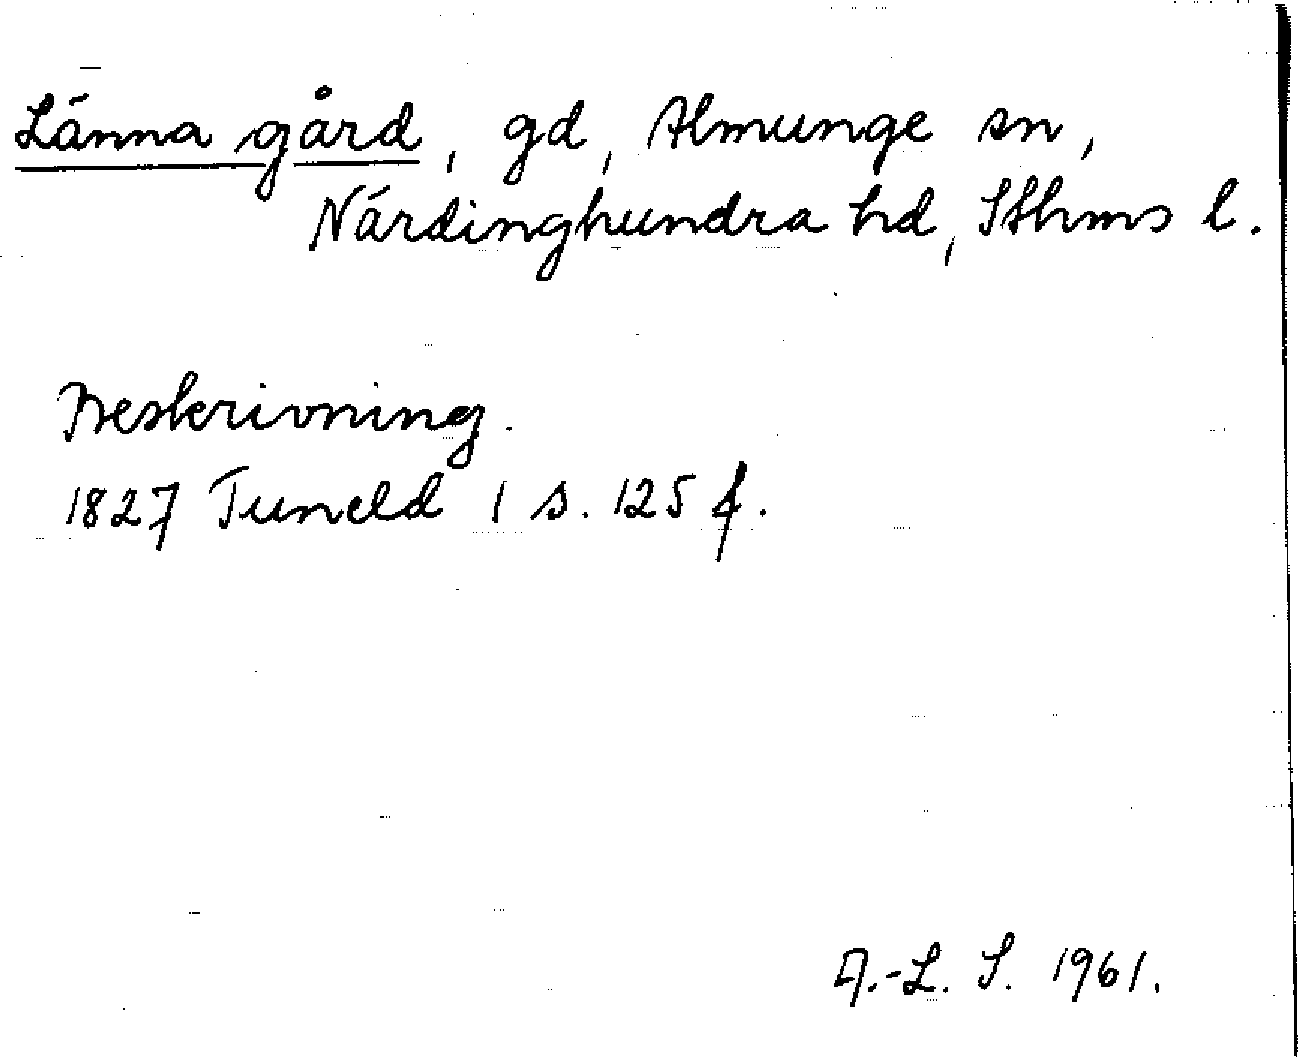 Länna gård, gd, Almunge sn,
Närdinghundra hd, Sthms l.
Beskrivning.
1827 Tuneld 1 s. 125 f.
A.-L. S. 1961.